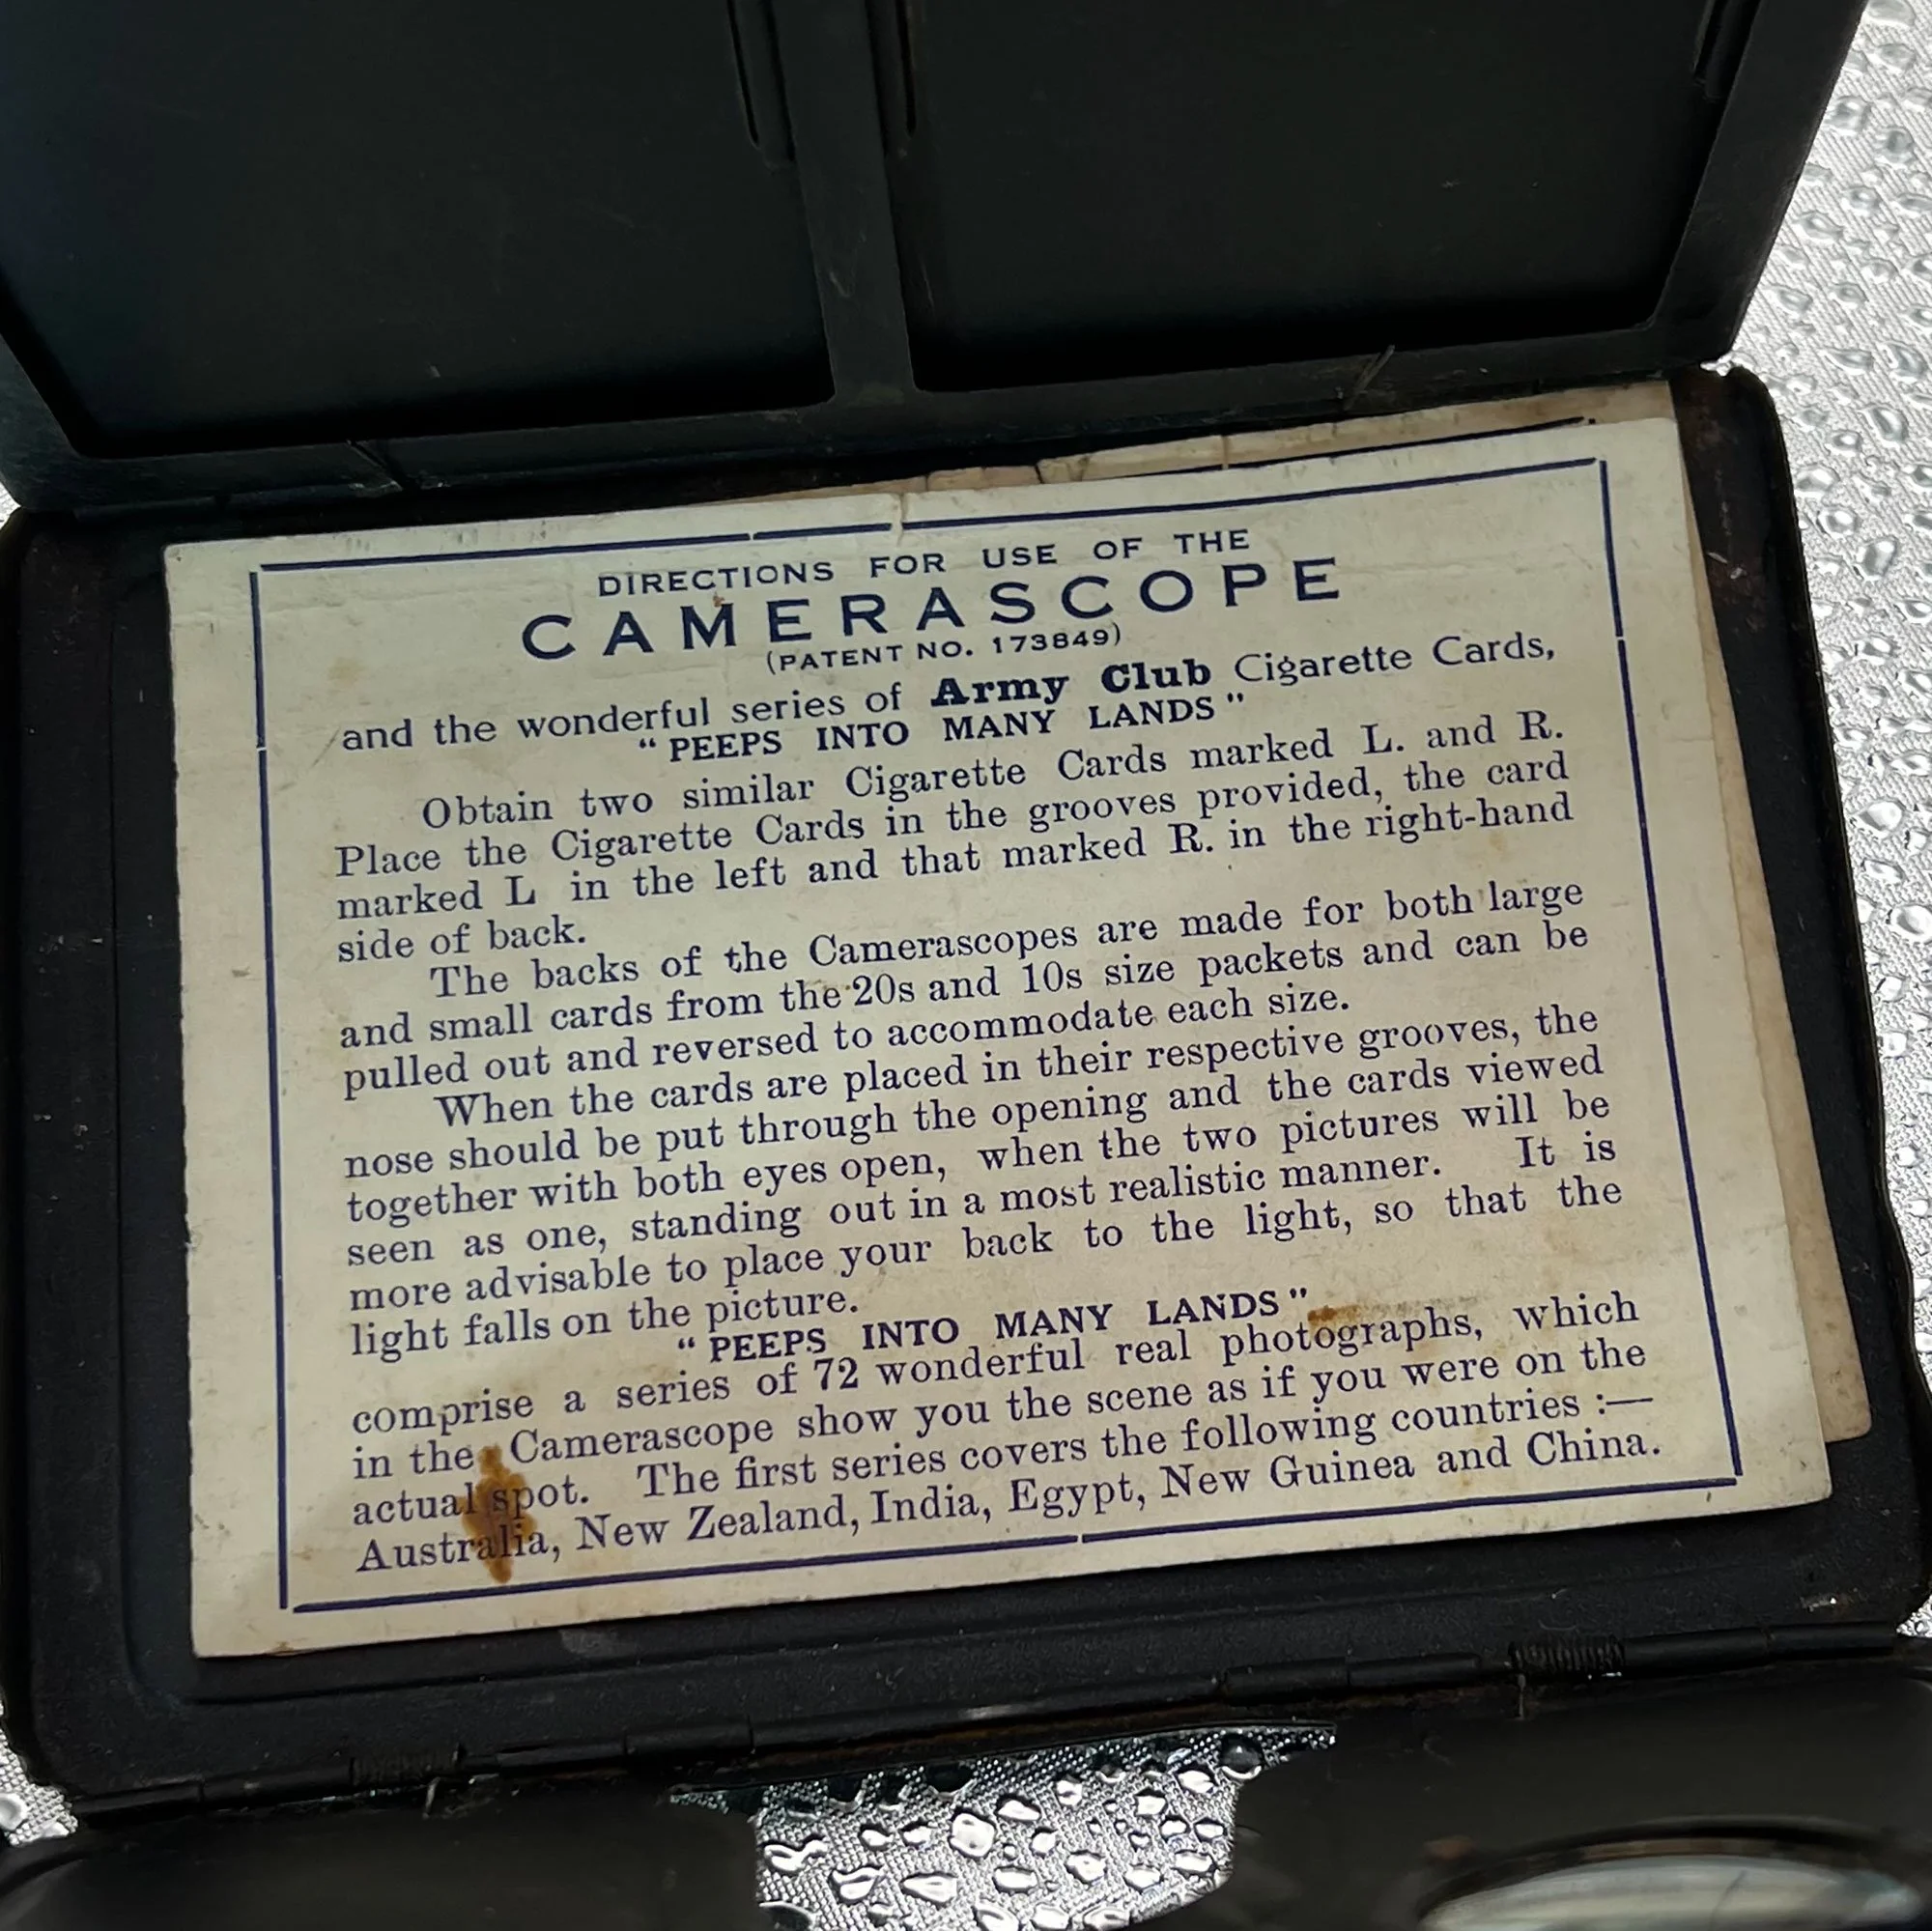 DIRECTIONS FOR USE OF THE
CAMERASCOPE
(PATENT NO. 173849)
and the wonderful series of Army Club Cigarette Cards,
“PEEPS INTO MANY LANDS”
Obtain two similar Cigarette Cards marked L. and R.
Place the Cigarette Cards in the grooves provided, the card
marked L in the left and that marked R. in the right-hand
side of back.
The backs of the Camerascopes are made for both large
and small cards from the 20s and 10s size packets and can be
pulled out and reversed to accommodate each size.
When the cards are placed in their respective grooves, the
nose should be put through the opening and the cards viewed
together with both eyes open, when the two pictures will be
seen as one, standing out in a most realistic manner. It is
more advisable to place your back to the light, so that the
light falls on the picture.
“PEEPS INTO MANY LANDS”
comprise a series of 72 wonderful real photographs, which
in the Camerascope show you the scene as if you were on the
actual spot. The first series covers the following countries :—
Australia, New Zealand, India, Egypt, New Guinea and China.